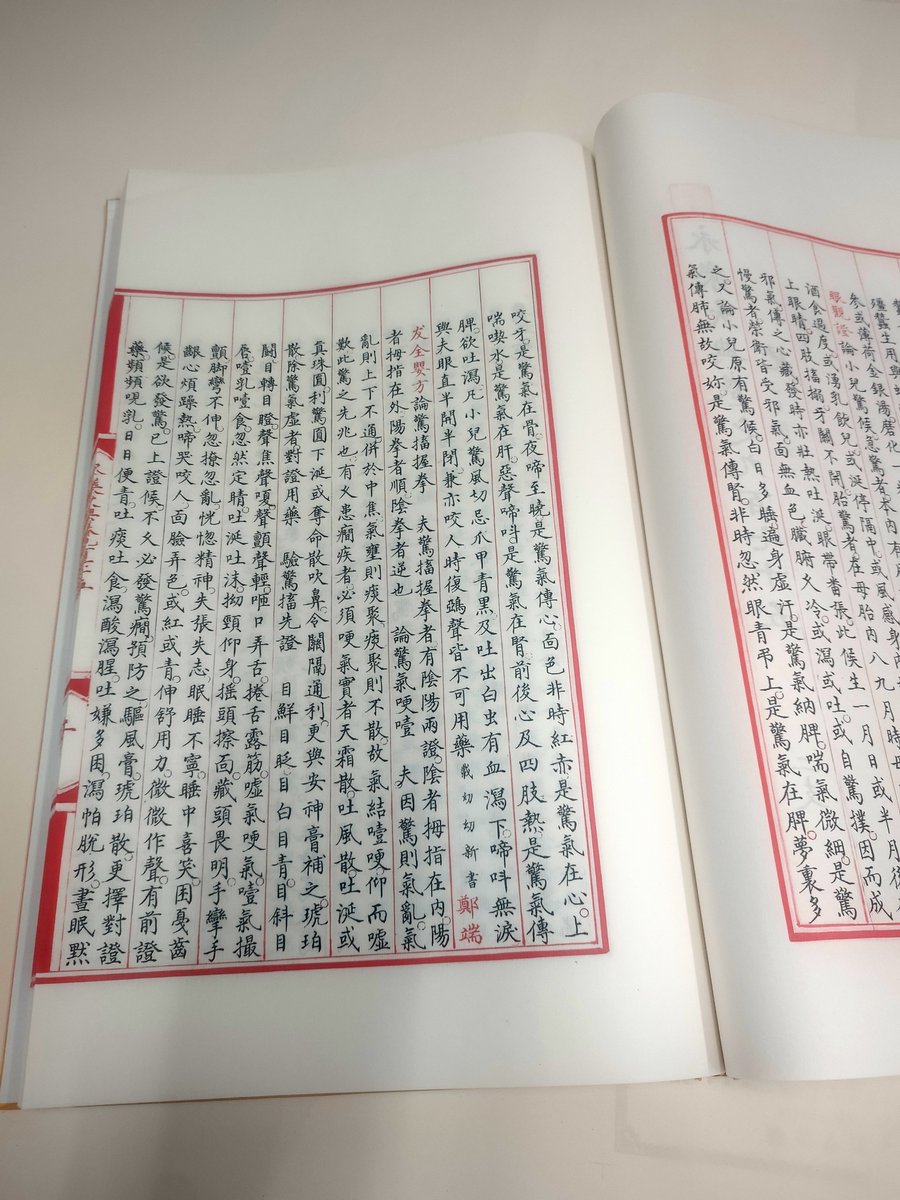 參或薄荷金銀湯磨化一
眼覩證論小兒驚候急驚者本內有
酒食過度或湧乳飲兒或涎停隔中
上眼睛四肢搐搦牙關不開胎驚者在母胎內八九月時母
邪氣傳之心藏發時亦壯熱吐涎眼帶番張此候生一月日或半月後
慢驚者榮衛皆受邪氣面無血色臟腑又冷或瀉或吐或自驚撲因而成
之又論小兒原有驚候白日多睡遍身虛汗是驚氣納脾喘氣微細是驚
氣傳肺無故咬妳是驚氣傳腎非時忽然眼青弔上是驚氣在脾夢裏多
咬牙是驚氣在骨夜啼至曉是驚氣傳心面色非時紅赤是驚氣在心上
喘喫水是驚氣在肝惡聲啼呌是驚氣在腎前後心及四肢熱是驚氣傳
脾欲吐瀉凡小兒驚風切忌爪甲青黑及吐出白虫有血瀉下啼呌無淚
與夫眼直半開半閉兼亦咬人時復鵶聲皆不可用藥載幼幼新書鄭端
友全嬰方論驚搐握拳 夫驚搐握拳者有陰陽兩證陰者拇指在內陽
者拇指在外陽拳者順陰拳者逆也 論驚氣哽壹 夫因驚則氣亂氣
亂則上下不通併於中焦氣壅則痰聚痰聚則不散故氣結噎哽仰而噓
歎此驚之先兆也有又患癇疾者必須哽氣實者天霜散吐風散吐涎或
真珠圓利驚圓下涎或奪命散吹鼻令關閫通利更與安神膏補之琥珀
散除驚氣虛者對證用藥 驗驚搐先證 目鮮目眨目白目青目斜目
鬬目轉目瞪聲焦聲嗄聲顫聲輕咂口弄舌捲舌露筋噓氣哽氣噎氣撮
唇噎乳噎食忽然定睛吐涎吐沫拗頸仰身摇頭擦面藏頭畏明手攣手
顫脚彎不伸忽撩忽亂恍惚精神失張失志眼睡不寧睡中喜笑困戞齒
齦心煩躁熱啼哭咬人面臉弄色或紅或青伸舒用力微微作聲有前證
候是欲發驚已上證候不又必發驚癇預防之驅風膏琥珀散更擇對證
藥頻頻哯乳日日便青吐痰吐食瀉酸瀉腥吐嫌多困瀉怕脫形晝眠黙